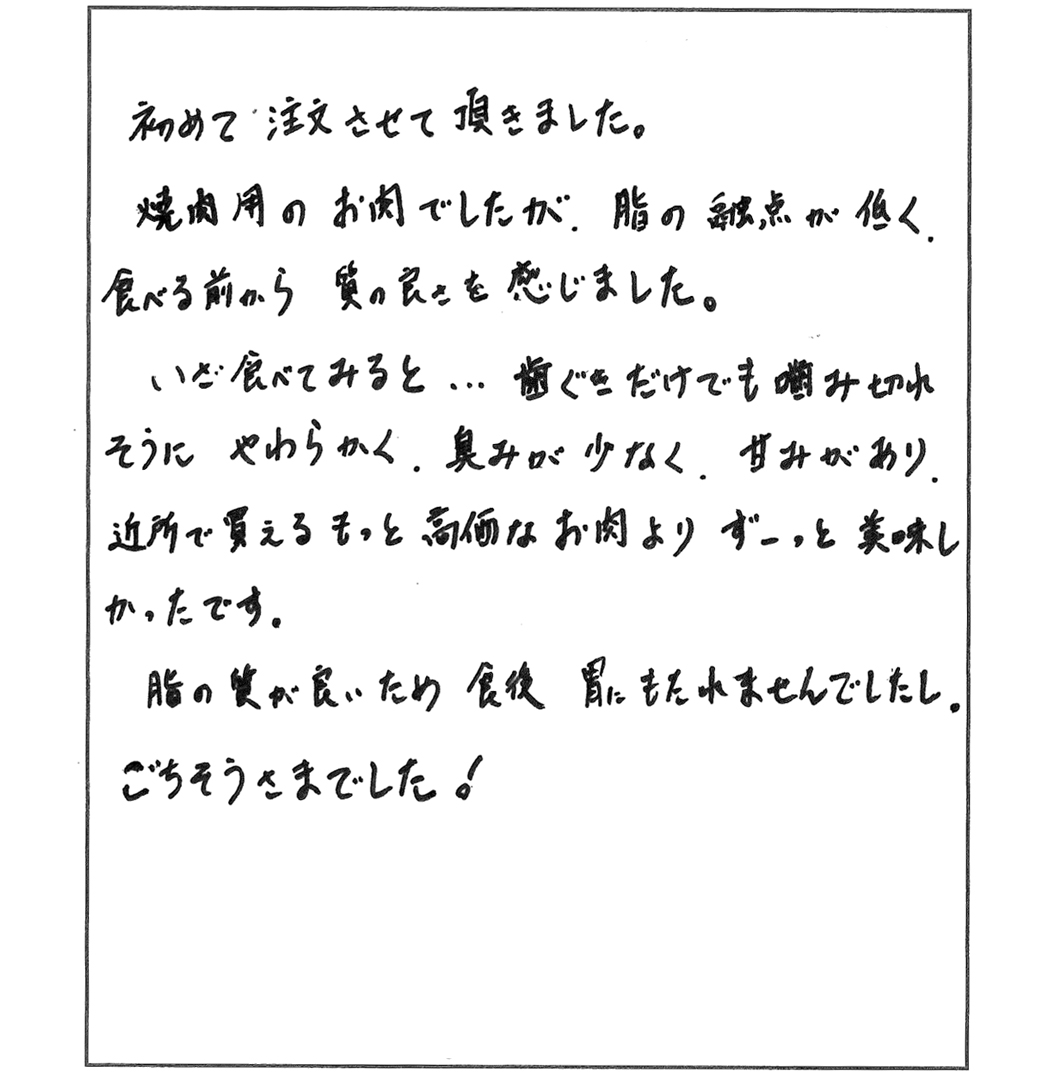 初めて注文させて頂きました。
焼肉用のお肉でしたが、脂の融点が低く、
食べる前から 質の良さを感じました。
いざ食べてみると… 歯ぐきだけでも噛み切れ
そうに やわらかく、臭みが少なく、甘みがあり、
近所で買えるもっと高価なお肉より ずーっと美味し
かったです。
脂の質が良いため 食後 胃にもたれませんでしたし。
ごちそうさまでした!